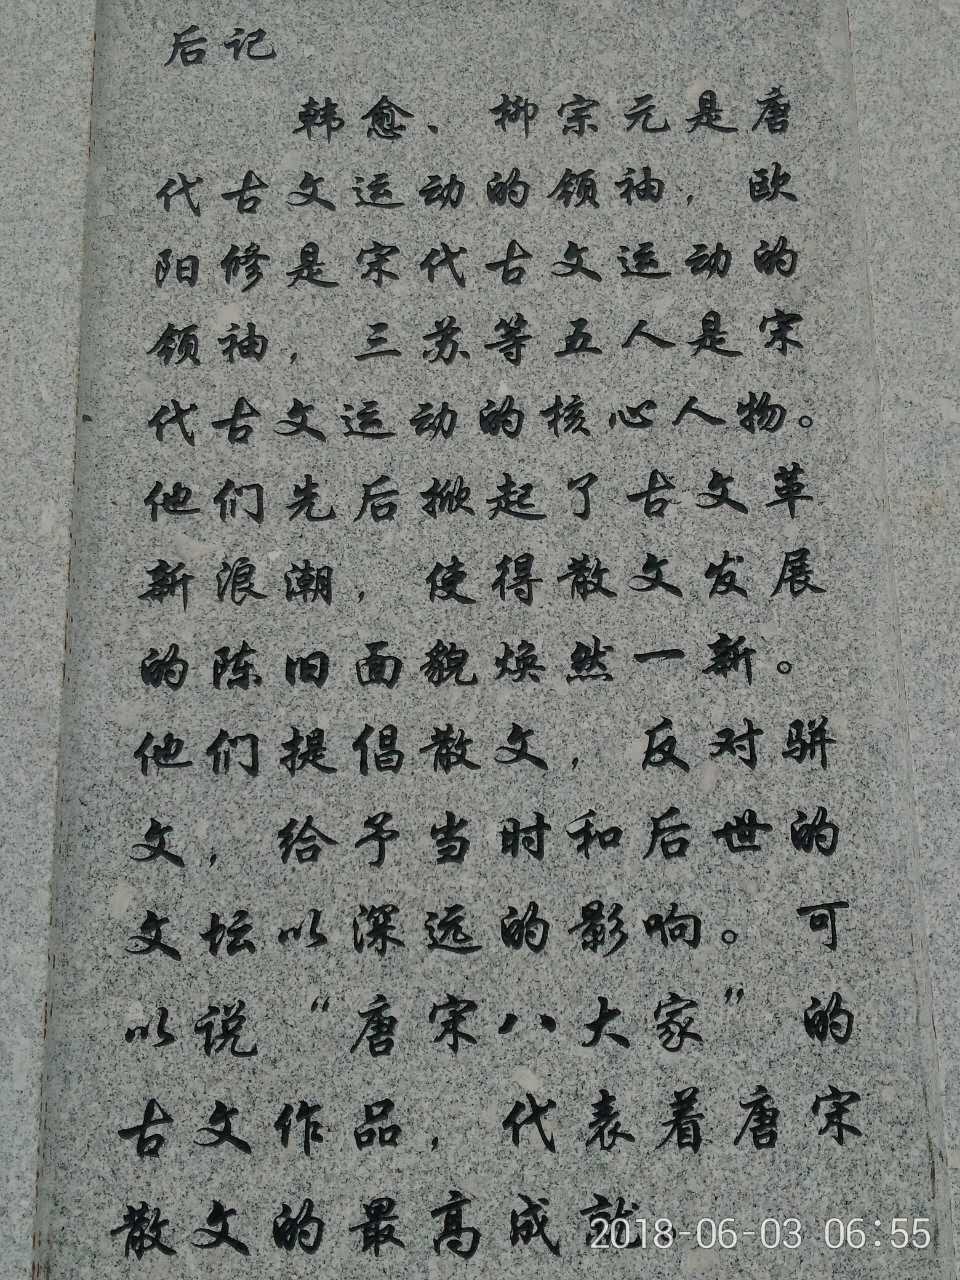 后记
韩愈、柳宗元是唐
代古文运动的领袖，欧
阳修是宋代古文运动的
领袖，三苏等五人是宋
代古文运动的核心人物。
他们先后掀起了古文革
新浪潮，使得散文发展
的陈旧面貌焕然一新。
他们提倡散文，反对骈
文，给予当时和后世的
文坛以深远的影响。可
以说“唐宋八大家”的
古文作品，代表着唐宋
散文的最高成就
2018-06-03 06:55